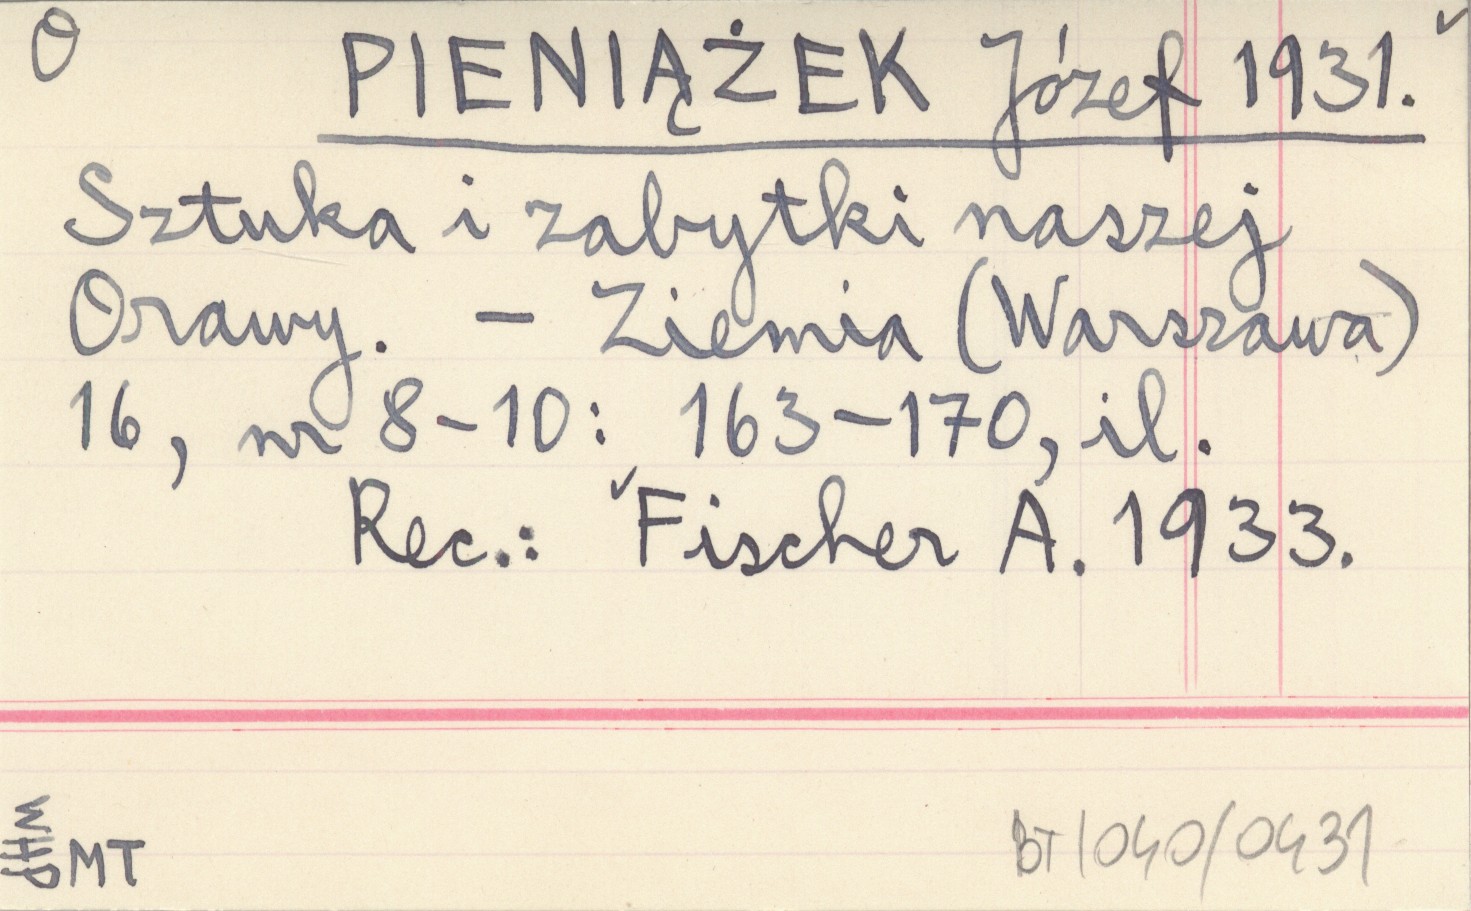 O PIENIĄŻEK Józef 1931.
Sztuka i zabytki naszej
Orawy. – Ziemia (Warszawa)
16, nr 8–10: 163–170, il.
Rec.: Fischer A. 1933.
MT
BT/040/0431